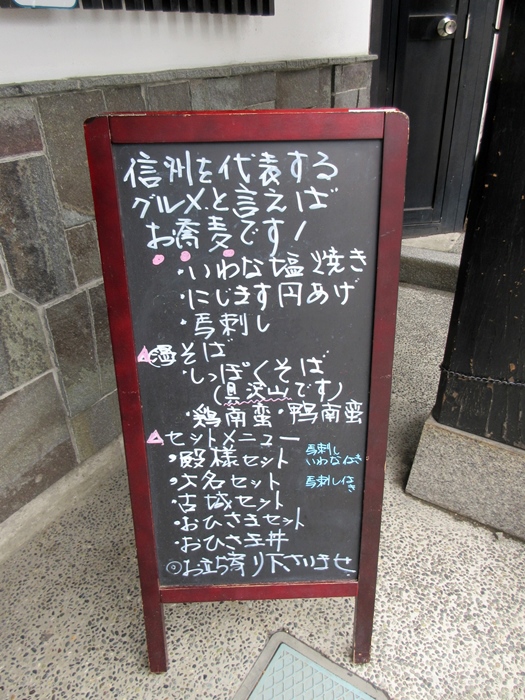 信州を代表する
グルメと言えば
お蕎麦です!
・いわな塩焼き
・にじます円あげ
・馬刺し
温そば
・しっぽくそば
(具沢山です)
・鶏南蛮・鴨南蛮
セットメニュー
・殿様セット 馬刺し いわな付き
・大名セット 馬刺し付き
・古城セット
・おひさまセット
・おひさま丼
◎お立ち寄り下さいませ